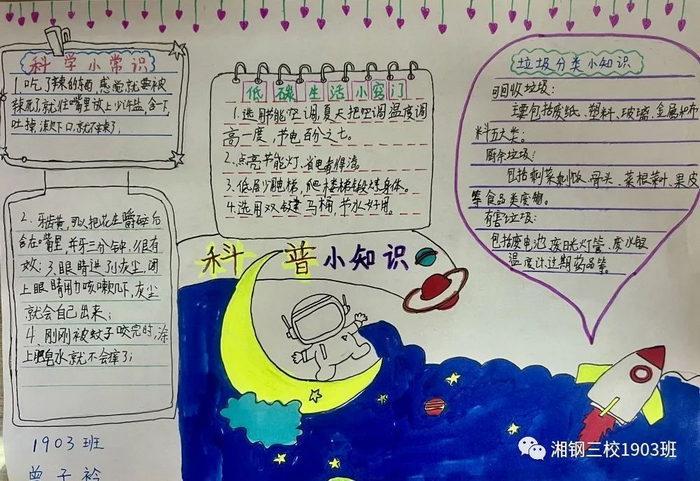 科学小常识
1.吃了辣的东西,感觉就要被
辣死了就往嘴里放上少许盐,含一下
吐掉,漱下口,就不辣了。
2、牙齿黄,可以把花生嚼碎后
含在嘴里,并牙三分钟,很有
效;3、眼睛进了灰尘,闭
上眼睛用力咳嗽几下,灰尘
就会自己出来;
4、刚刚被蚊子咬完时,涂
上肥皂水就不会痒了;
1903班
曾子衿
低碳生活小窍门
1.选用节能空调,夏天把空调温度调
高一度,节电百分之七。
2.点亮节能灯,省电看得清。
3.低层少乘梯,爬楼梯锻炼身体。
4.选用双键马桶,节水好用。
科普小知识
垃圾分类小知识
可回收垃圾:
主要包括废纸、塑料、玻璃、金属和布
料五大类。
厨余垃圾:
包括剩菜剩饭、骨头、菜根菜叶、果皮
等食品类废物。
有害垃圾:
包括废电池、废日光灯管、废水银
温度计、过期药品等。
湘钢三校1903班